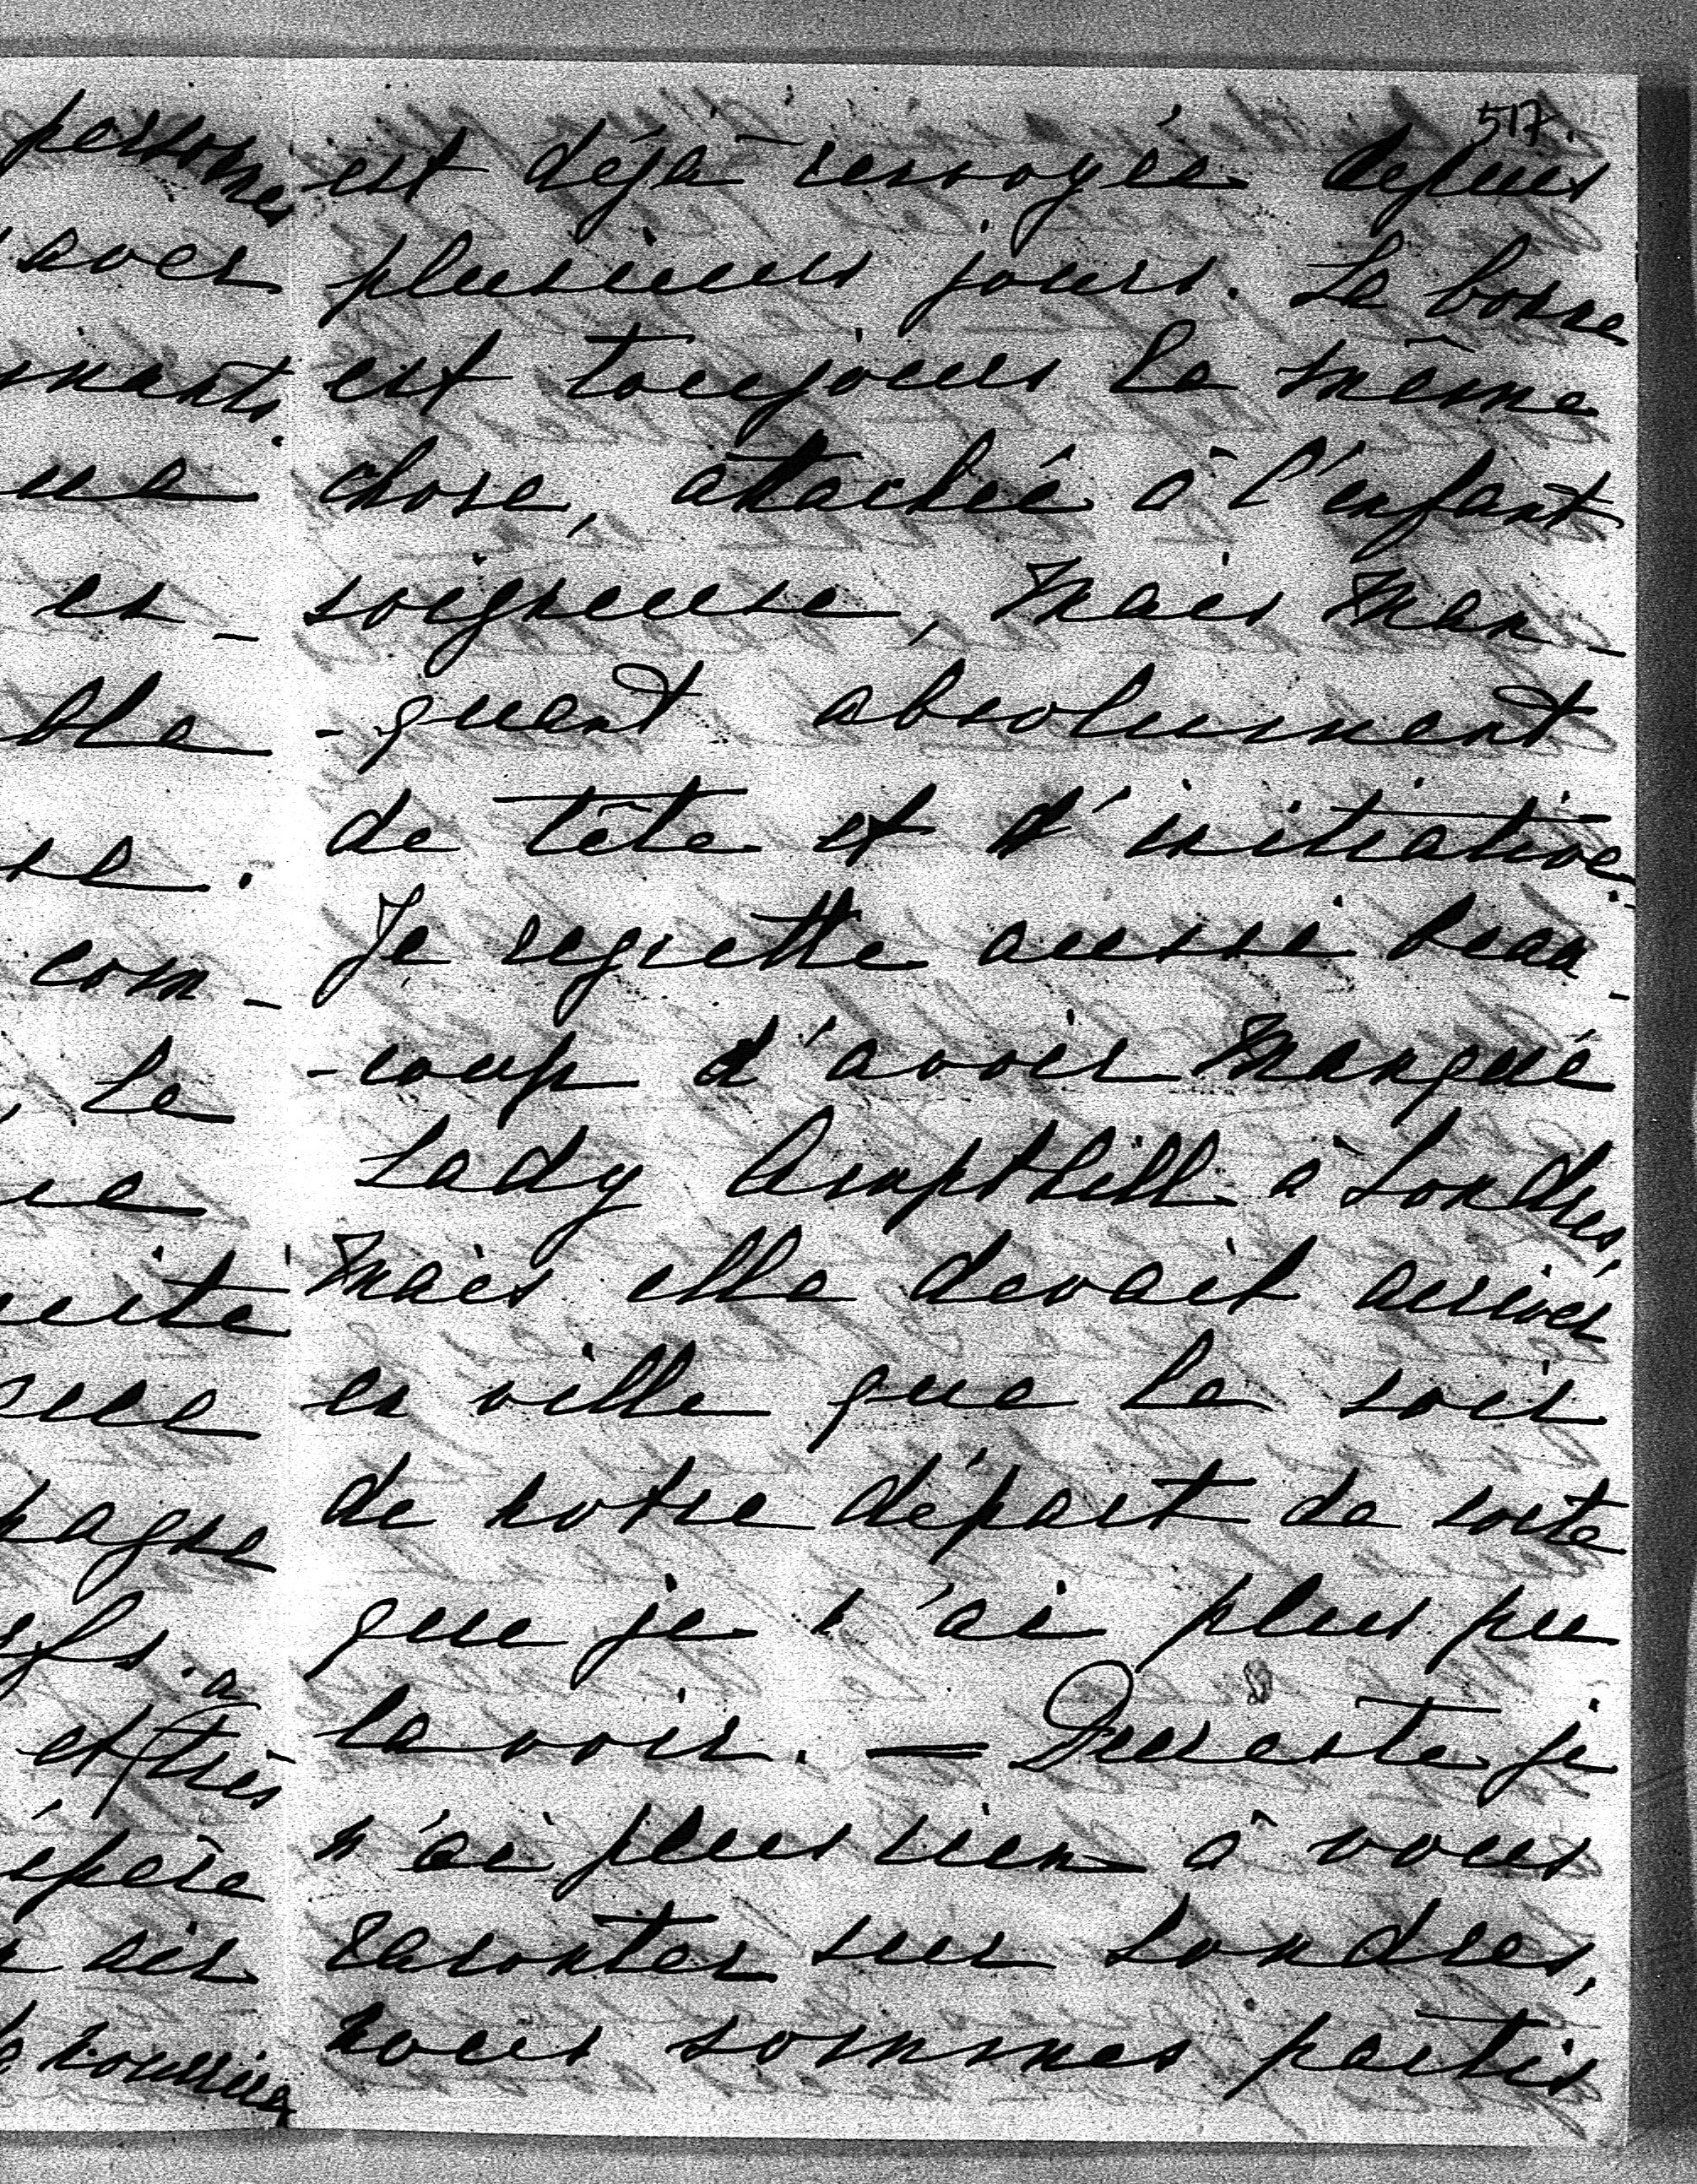 517.
personne
avoir
nants,
ue
en-
ble
se.
com-
, le
ue
uite
que
pagne
sfs. a
et très
spère
air
nourrice
est déjà renvoyée depuis
plusieurs jours. La bonne
est toujours la même
chose, attachée à l'enfant
soigneuse, mais man-
-quant absolument
de tête et d'initiative.
Je regrette aussi beau-
-coup d'avoir manqué
Lady Ampthill à Londres,
mais elle devait arriver
en ville que le soir
de notre départ de sorte
que je n'ai plus pu
la voir. — Du reste je
n'ai plus rien à vous
raconter sur Londres,
nous sommes partis